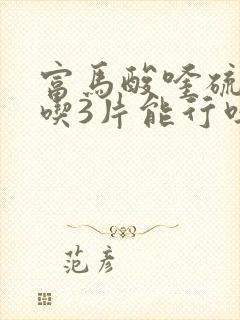 富马酸喹硫
喫3片能行吗
范彦